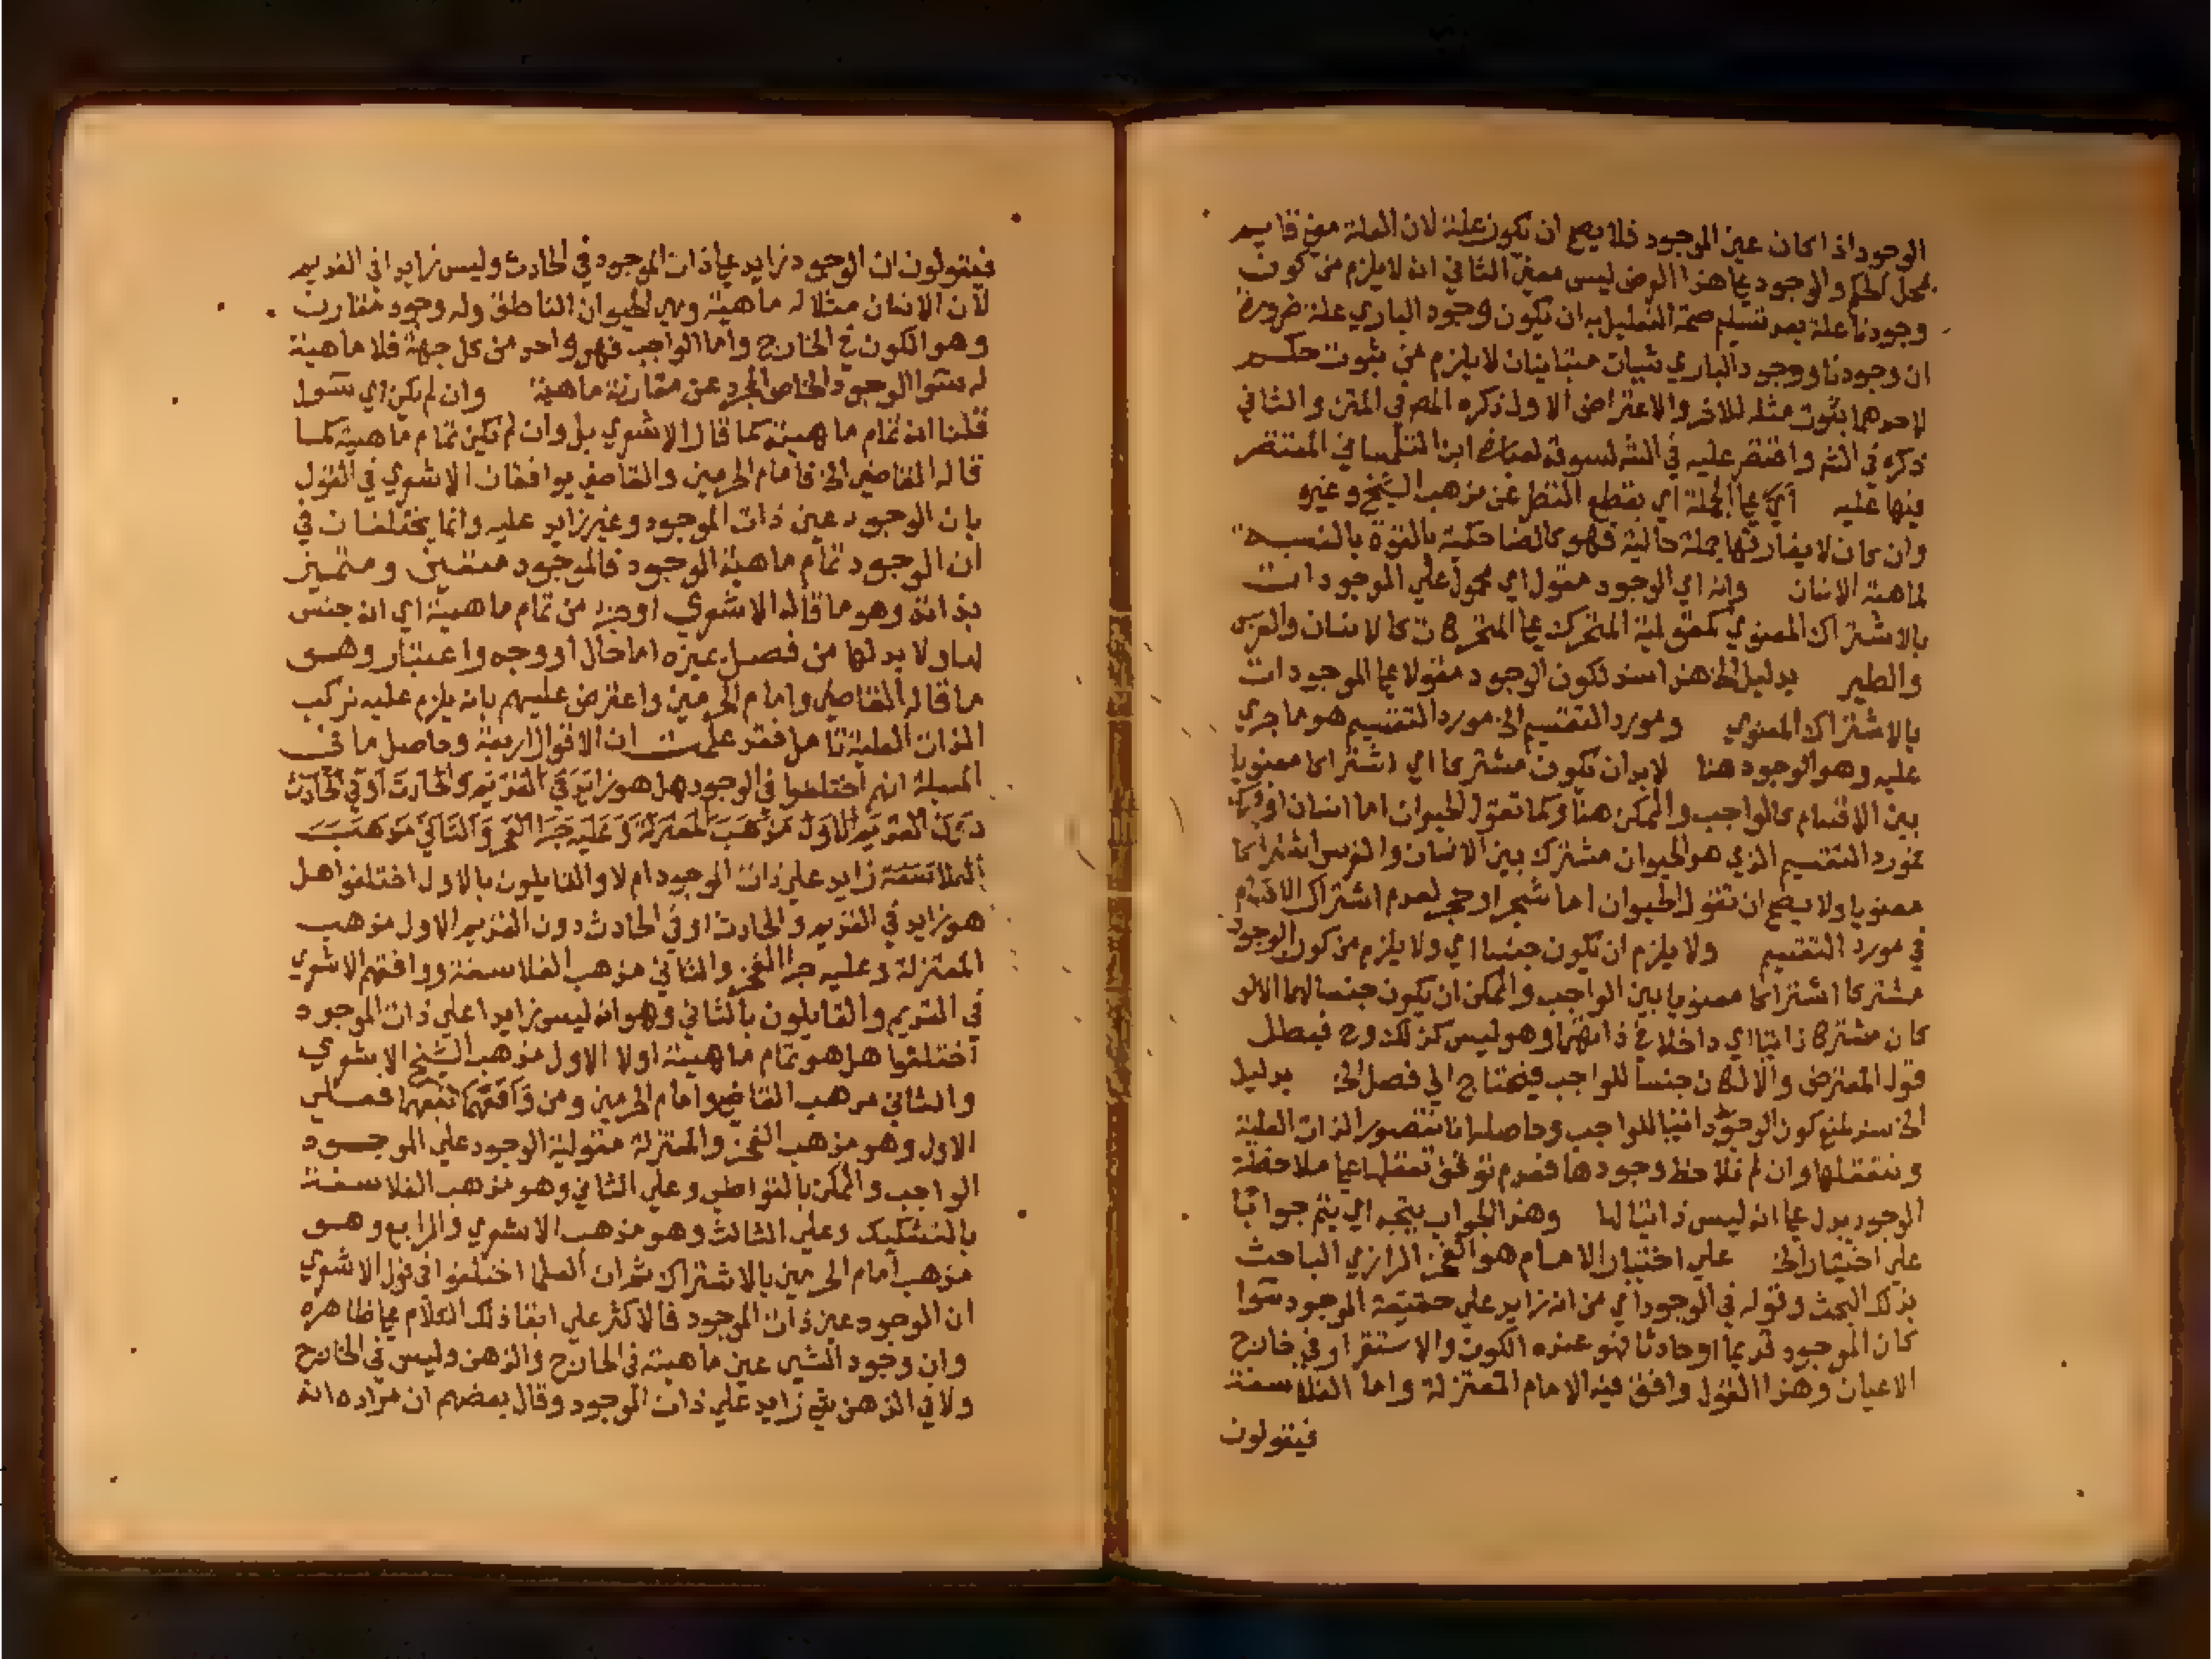 الوجود اذا كان عين الموجود فلا يصح ان تكون علة لان العلة معني قايم
بمحل الحكم والوجود علي هذا الوض ليس معني الثاني انه لا يلزم من كون
وجودنا علة بعد تسليم صحة التعليل به ان تكون وجود الباري علة ضرورة
ان وجودنا ووجود الباري شيات متباينان لا يلزم من ثبوت حكم
لاحدهما ثبوت مثله للاخر والاعتراض الاول ذكره المص في المتن والثاني
ذكره في الشر واقتصر عليه في الشر لسوقه لعبارة ابن التلمساني المقتصر
فيها عليه اي علي الجملة اي بقطع النظر عن مذهب الشيخ وغيره
وان كان لا يفارقها جملة حالية فهو كالضاحكية بالقوة بالنسبة
لماهية الانسان وانه اي الوجود مقول اي محمول علي الموجودات
بالاشتراك المعنوي كمقولية المتحرك علي المتحركات كالانسان والفرس
والطير بدليل الخ هذا سند لكون الوجود مقولا علي الموجودات
بالاشتراك المعنوي ومورد التقسيم الخ مورد التقسيم هو ما جري
عليه وهو الوجود هنا لابد ان تكون مشتركا اي اشتراكا معنويا
بين الاقسام كالواجب والممكن هنا وكما تقول الحيوان اما انسان او فرس
فمورد التقسيم الذي هو الحيوان مشترك بين الانسان والفرس اشتراكا
معنويا ولا يصح ان تقول الحيوان اما شجر او حجر لعدم اشتراك الاقسام
في مورد التقسيم ولا يلزم ان تكون جنسا اي ولا يلزم من كون الوجود
مشتركا اشتراكا معنويا بين الواجب والممكن ان يكون جنسا لهما الا لو
كان مشتركا ذاتيا اي داخلا في ذاتهما وهو ليس كذلك وح فبطل
قول المعترض والا لكان جنسا للواجب فيحتاج الي فصل الخ بدليل
الخ سند لمنع كون الوجود ذاتيا للواجب وحاصله انا نتصور الذات العلية
ونتعقلها وان لم نلاحظ وجودها فعدم توقف تعقلها علي ملاحظة
الوجود يدل علي انه ليس ذاتيا لها وهذا الجواب يتجه اي يتم جوابا
علي اختيار الخ علي اختيار الامام هو الفخر الرازي الباحث
بذلك البحث وقوله في الوجود اي من انه زايد علي حقيقة الموجود سوا
كان الموجود قديما او حادثا فهو عنده الكون والاستقرار في خارج
الاعيان وهذا القول وافق فيه الامام المعتزلة واما الفلاسفة
فيقولون
فيقولون ان الوجود زايد علي ذات الموجود في الحادث وليس زايدا في القديم
لان الانسان مثلا له ماهية وهي الحيوان الناطق وله وجود مقارن
وهو الكون في الخارج واما الواجب فهو واحد من كل جهة فلا ماهية
له سوا الوجود الخاص المجرد عن مقارنة ماهية وان لم تكن اي سوا
قلنا انه تمام ماهيته كما قال الاشعري بل وان لم تكن تمام ماهيته كما
قاله القاضي الخ فامام الحرمين والقاضي يوافقان الاشعري في القول
بان الوجود عين ذات الموجود وغير زايد عليه وانما يختلفان في
ان الوجود تمام ماهية الوجود فالموجود متعين ومتميز
بذاته وهو ما قاله الاشعري او جزء من تمام ماهيته اي انه جنس
لها ولا بد لها من فصل غيره اما حال او وجه واعتبار وهو
ما قاله القاضي وامام الحرمين واعترض عليهم بانه يلزم عليه تركب
الذات العلية تامل فقد علمت ان الاقوال اربعة وحاصل ما في
المسيلة انهم اختلفوا في الوجود هل هو زايد في القديم والحادث او في الحادث
دون القديم الاول مذهب المعتزلة وعليه جرا الفخر والثاني مذهب
الفلاسفة زايد علي ذات الموجود ام لا والقايلون بالاول اختلفوا هل
هو زايد في القديم والحادث او في الحادث دون القديم الاول مذهب
المعتزلة وعليه جرا الفخر والثاني مذهب الفلاسفة ووافقهم الاشعري
في القديم والقايلون بالثاني وهو انه ليس زايدا علي ذات الموجود
اختلفوا هل هو تمام ماهيته اولا الاول مذهب الشيخ الاشعري
والثاني مذهب القاضي وامام الحرمين ومن وافقهما تبعهما فعلي
الاول وهو مذهب الفخر والمعتزلة مقولية الوجود علي الموجود
الواجب والممكن بالتواطي وعلي الثاني وهو مذهب الفلاسفة
بالتشكيك وعلي الثالث وهو مذهب الاشعري والرابع وهو
مذهب امام الحرمين بالاشتراك ثم ان العلما اختلفوا في قول الاشعري
ان الوجود عين ذات الموجود فالاكثر علي ابقا ذلك الكلام علي ظاهره
وان وجود الشي عين ماهيته في الخارج والذهن وليس في الخارج
ولا في الذهن شي زايد علي ذات الموجود وقال بعضهم ان مراده انه